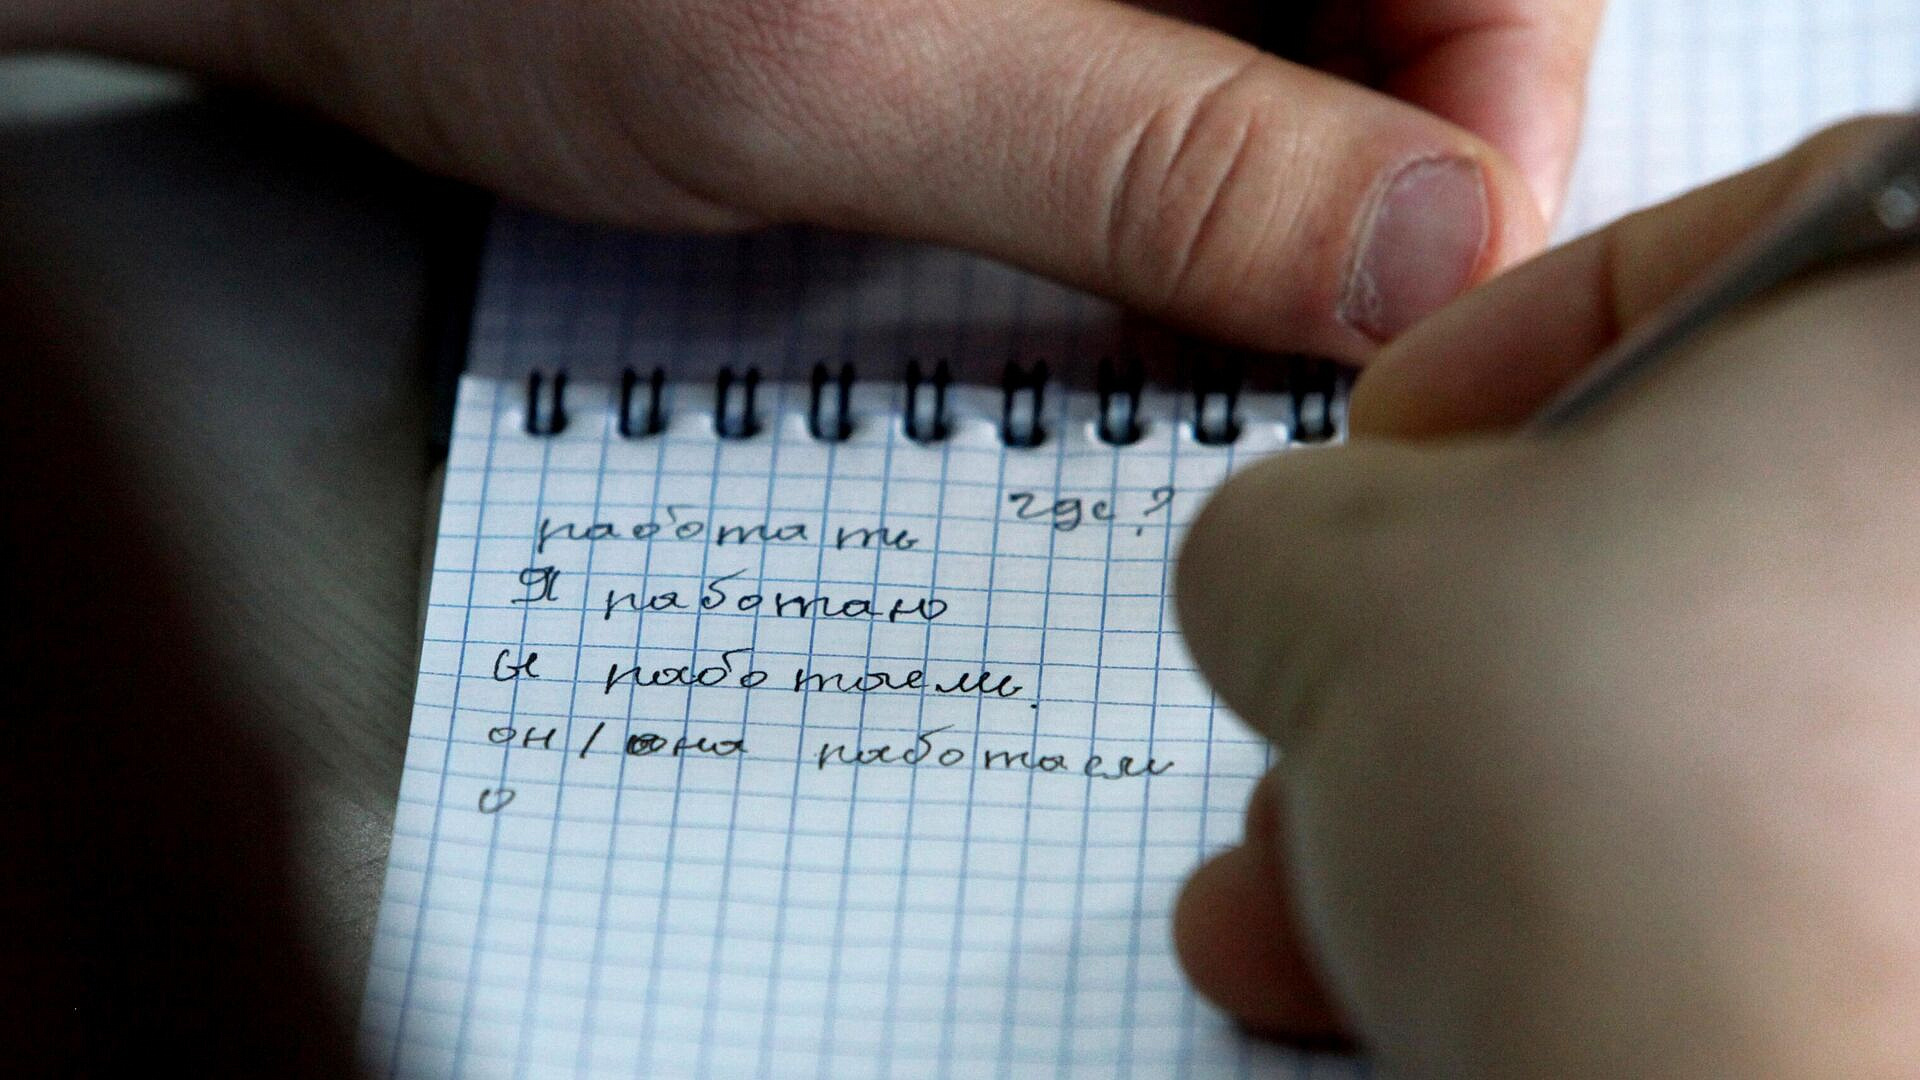 где?
работать
Я работаю
ы работаешь.
он / она работает
о